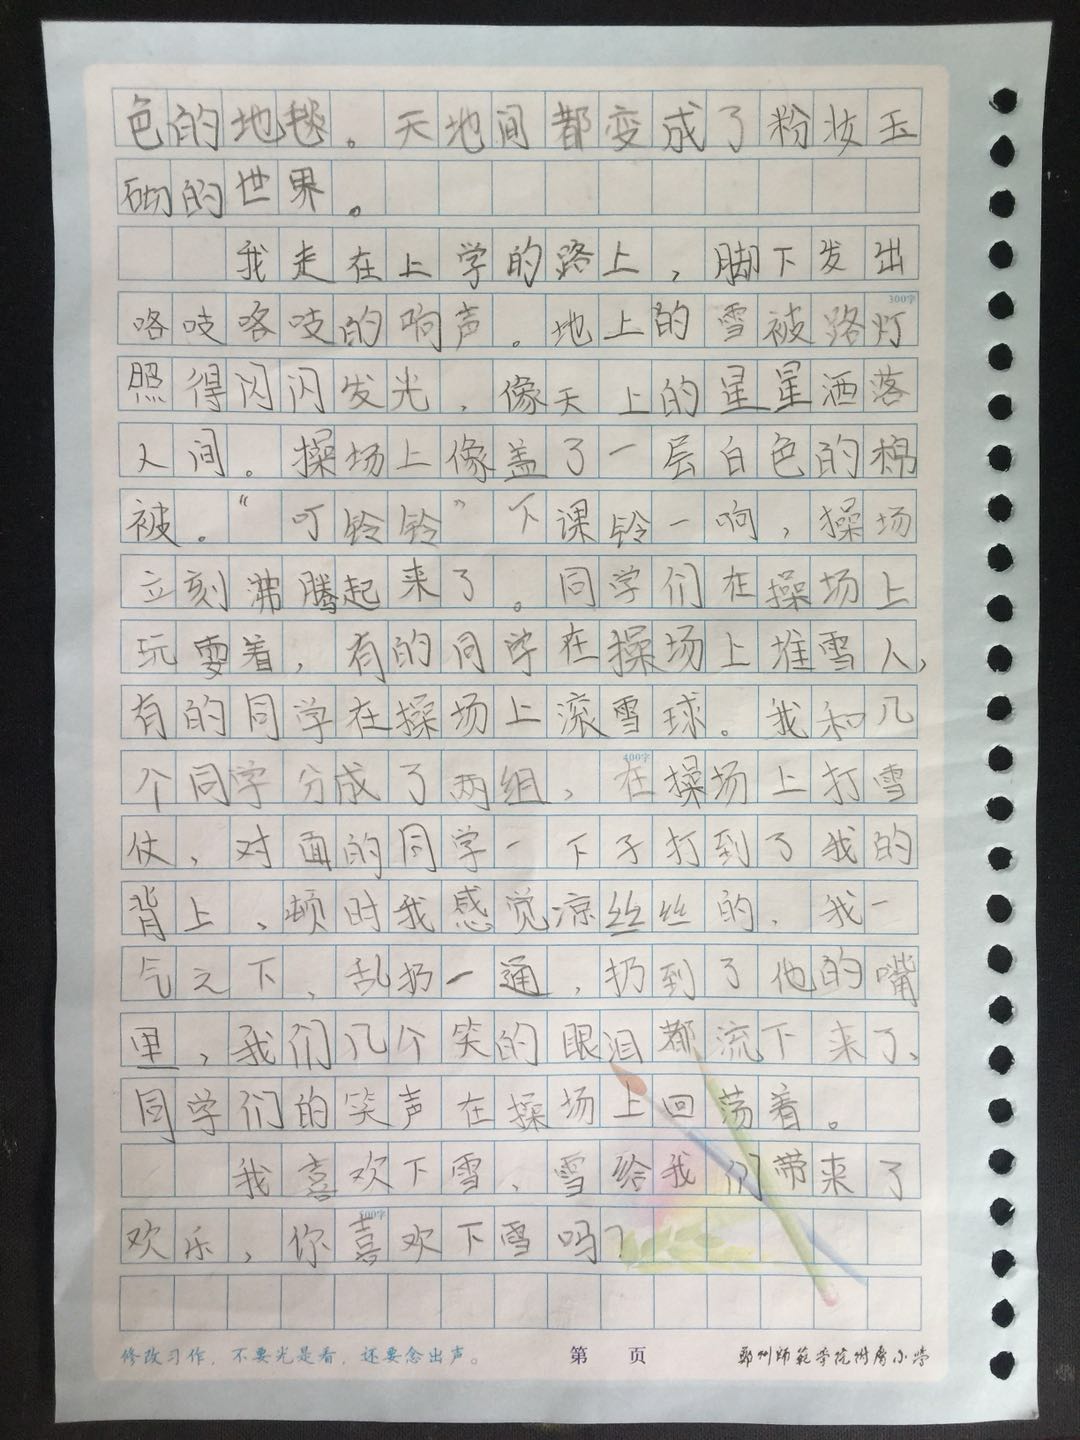 色的地毯。天地间都变成了粉妆玉
砌的世界。
我走在上学的路上，脚下发出
300字
咯吱咯吱的响声。地上的雪被路灯
照得闪闪发光，像天上的星星洒落
人间。操场上像盖了一层白色的棉
被。“叮铃铃”下课铃一响，操场
立刻沸腾起来了。同学们在操场上
玩耍着，有的同学在操场上堆雪人，
有的同学在操场上滚雪球。我和几
400字
个同学分成了两组，在操场上打雪
仗，对面的同学一下子打到了我的
背上，顿时我感觉凉丝丝的，我一
气之下，乱扔一通，扔到了他的嘴
里，我们几个笑的眼泪都流下来了、
同学们的笑声在操场上回荡着。
我喜欢下雪，雪给我们带来了
500字
欢乐，你喜欢下雪吗？
修改习作，不要光是看，还要念出声。 第 页 郑州师范学院附属小学